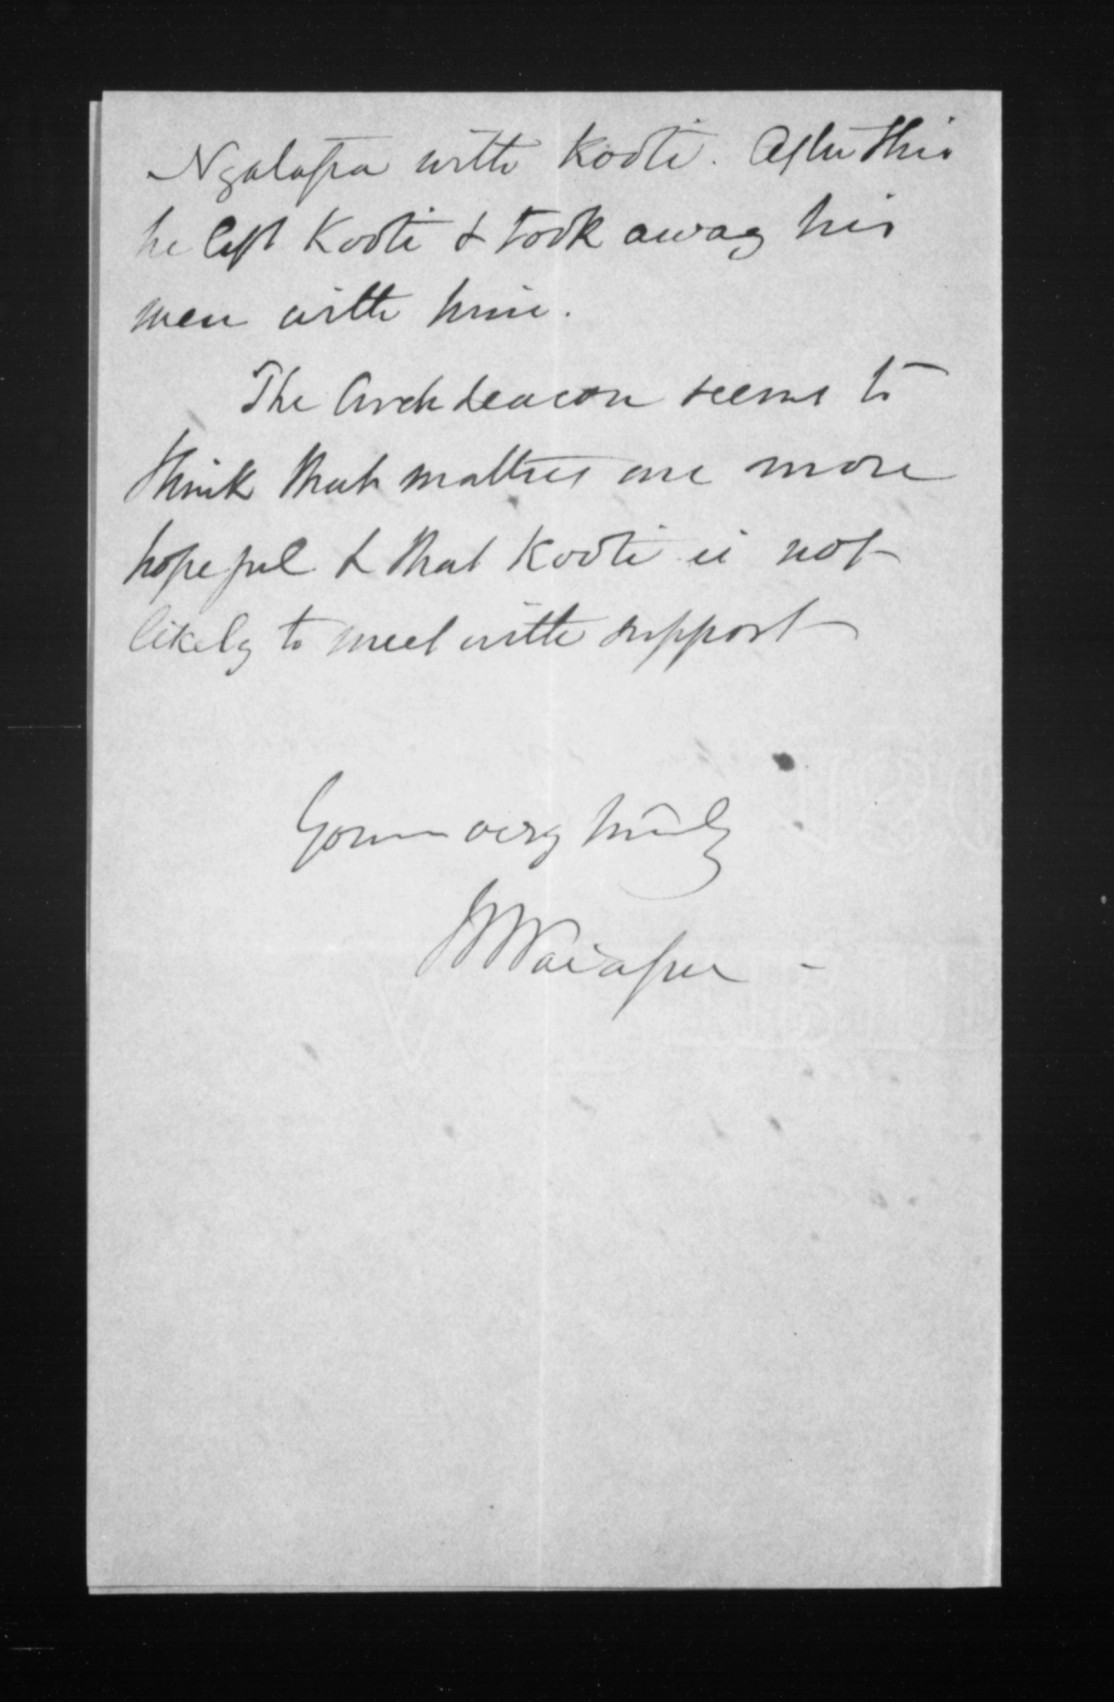 Ngatapa with Kooti. After this
he left Kooti & took away his
men with him.
The Archdeacon seems to
think that matters are more
hopeful & that Kooti is not
likely to meet with support
Yours very truly
W Waiapu -